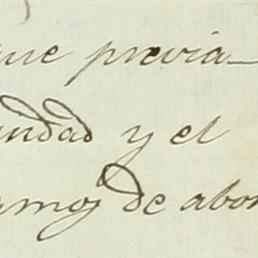 que previa-
undad y el
amos de abon